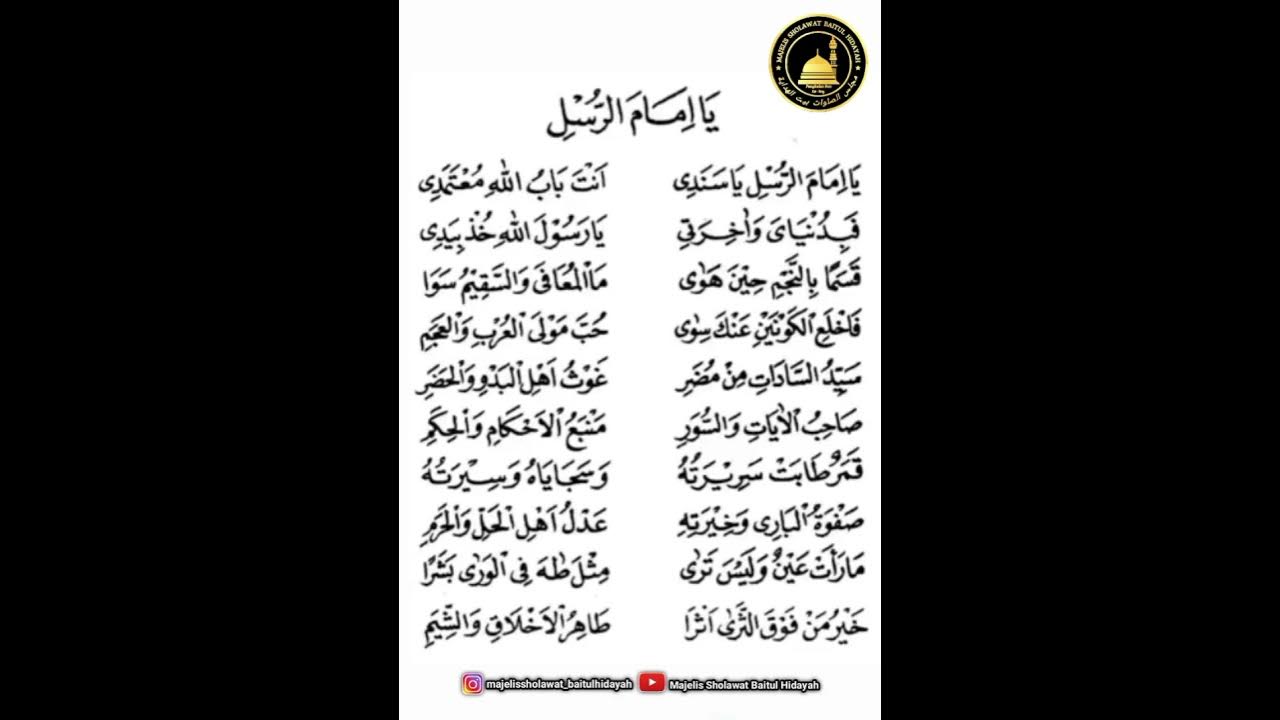 MAJELIS SHOLAWAT BAITUL HIDAYAH
مجلس الصلوات بيت الهداية
يَا اِمَامَ الرُّسْلِ
يَا اِمَامَ الرُّسْلِ يَا سَنَدِى اَنْتَ بَابُ اللهِ مُعْتَمَدِى
فَبِدُنْيَاىَ وَاٰخِرَتِى يَا رَسُوْلَ اللهِ خُذْ بِيَدِى
قَسَمًا بِالنَّجْمِ حِيْنَ هَوٰى مَاالْمُعَافَى وَالسَّقِيْمُ سَوَا
فَاخْلَعِ الْكَوْنَيْنِ عَنْكَ سِوٰى حُبَّ مَوْلَى الْعُرْبِ وَالْعَجَمِ
سَيِّدُ السَّادَاتِ مِنْ مُضَرِ غَوْثُ اَهْلِ الْبَدْوِ وَالْحَضَرِ
صَاحِبُ الْاٰيَاتِ وَالسُّوَرِ مَنْبَعُ الْاَحْكَامِ وَالْحِكَمِ
قَمَرٌ طَابَتْ سَرِيْرَتُهُ وَسَجَايَاهُ وَسِيْرَتُهُ
صَفْوَةُ الْبَارِى وَخِيْرَتِهِ عَدْلُ اَهْلِ الْحِلِّ وَالْحَرَمِ
مَا رَأَتْ عَيْنٌ وَلَيْسَ تَرٰى مِثْلَ طٰهَ فِى الْوَرٰى بَشَرًا
خَيْرُ مَنْ فَوْقَ الثَّرٰى اَثَرَا طَاهِرُ الْاَخْلَاقِ وَالشِّيَمِ
majelissholawat_baitulhidayah Majelis Sholawat Baitul Hidayah